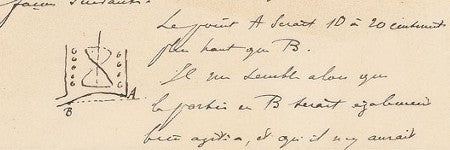 façon suivante.
Le point A serait 10 à 20 centimètres
plus haut que B.
Il me semble alors que
la partie en B serait également
bien agitée, et qu'il n'y aurait
A
B